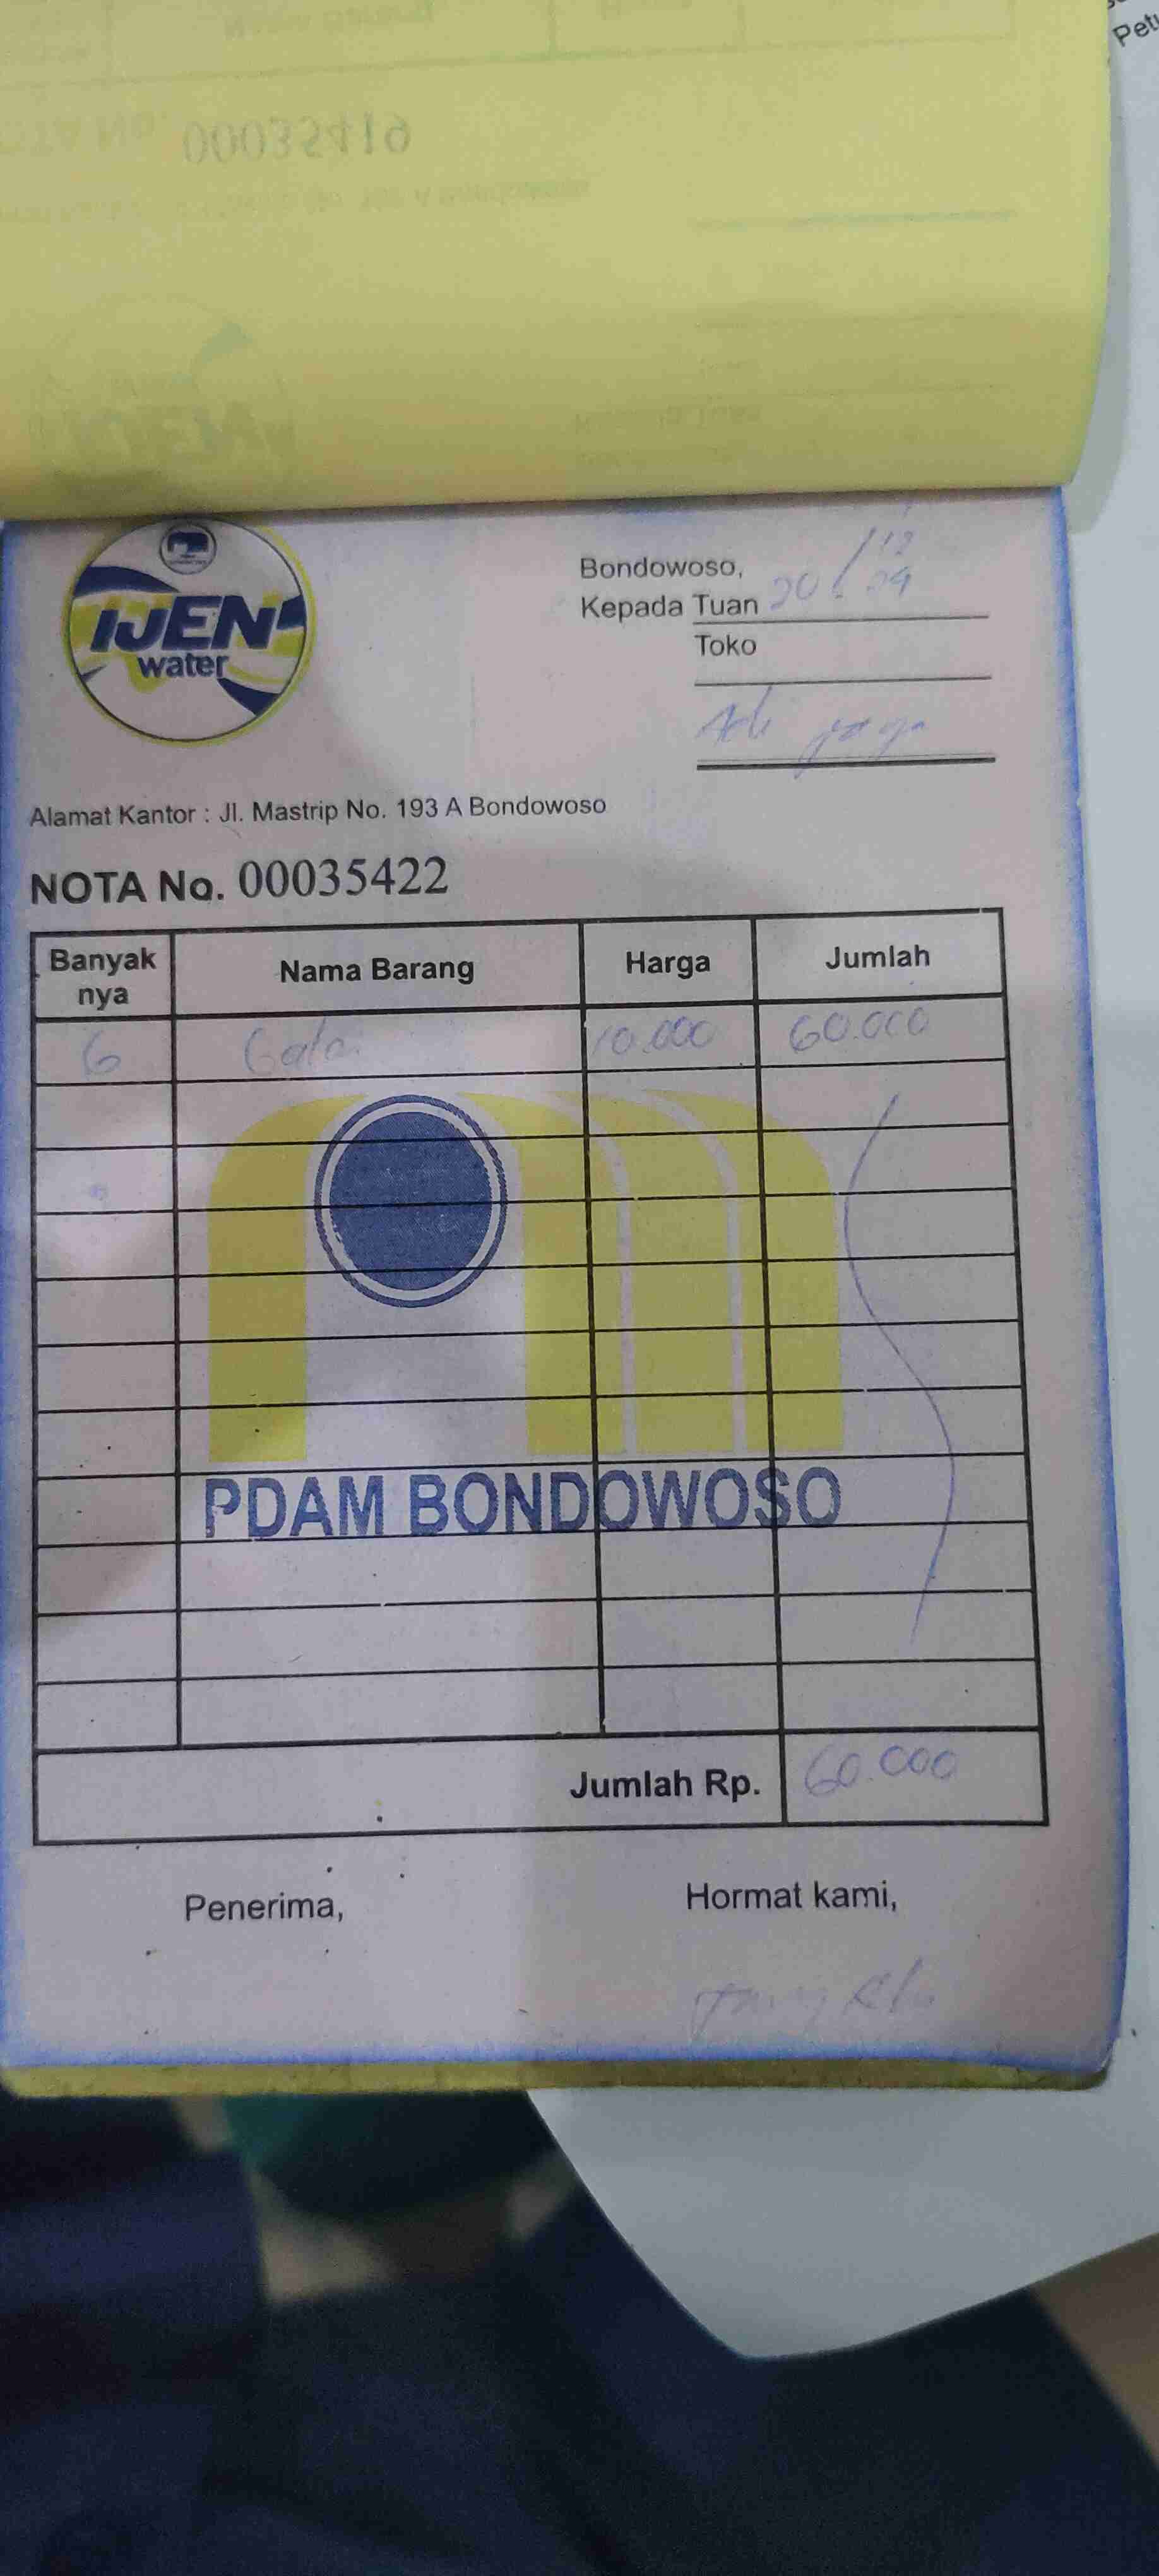 Petu
00035419
IJEN
water
Bondowoso, 20/12
24
Kepada Tuan
Toko
Alamat Kantor : Jl. Mastrip No. 193 A Bondowoso
NOTA No. 00035422
Banyak nya Nama Barang Harga Jumlah
6 10.000 60.000
PDAM BONDOWOSO
Jumlah Rp. 60.000
Penerima, Hormat kami,